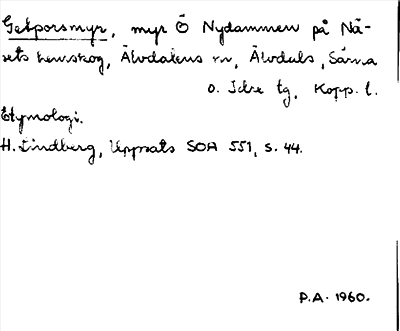 Getporsmyr, myr Ö Nydammen på Nä-
sets kewskog, Älvdalens sn, Älvdals, Särna
o. Idre tg, Kopp. l.
Etymologi.
H. Lindberg, Uppsats SOA 551, s. 44.
P.A. 1960.